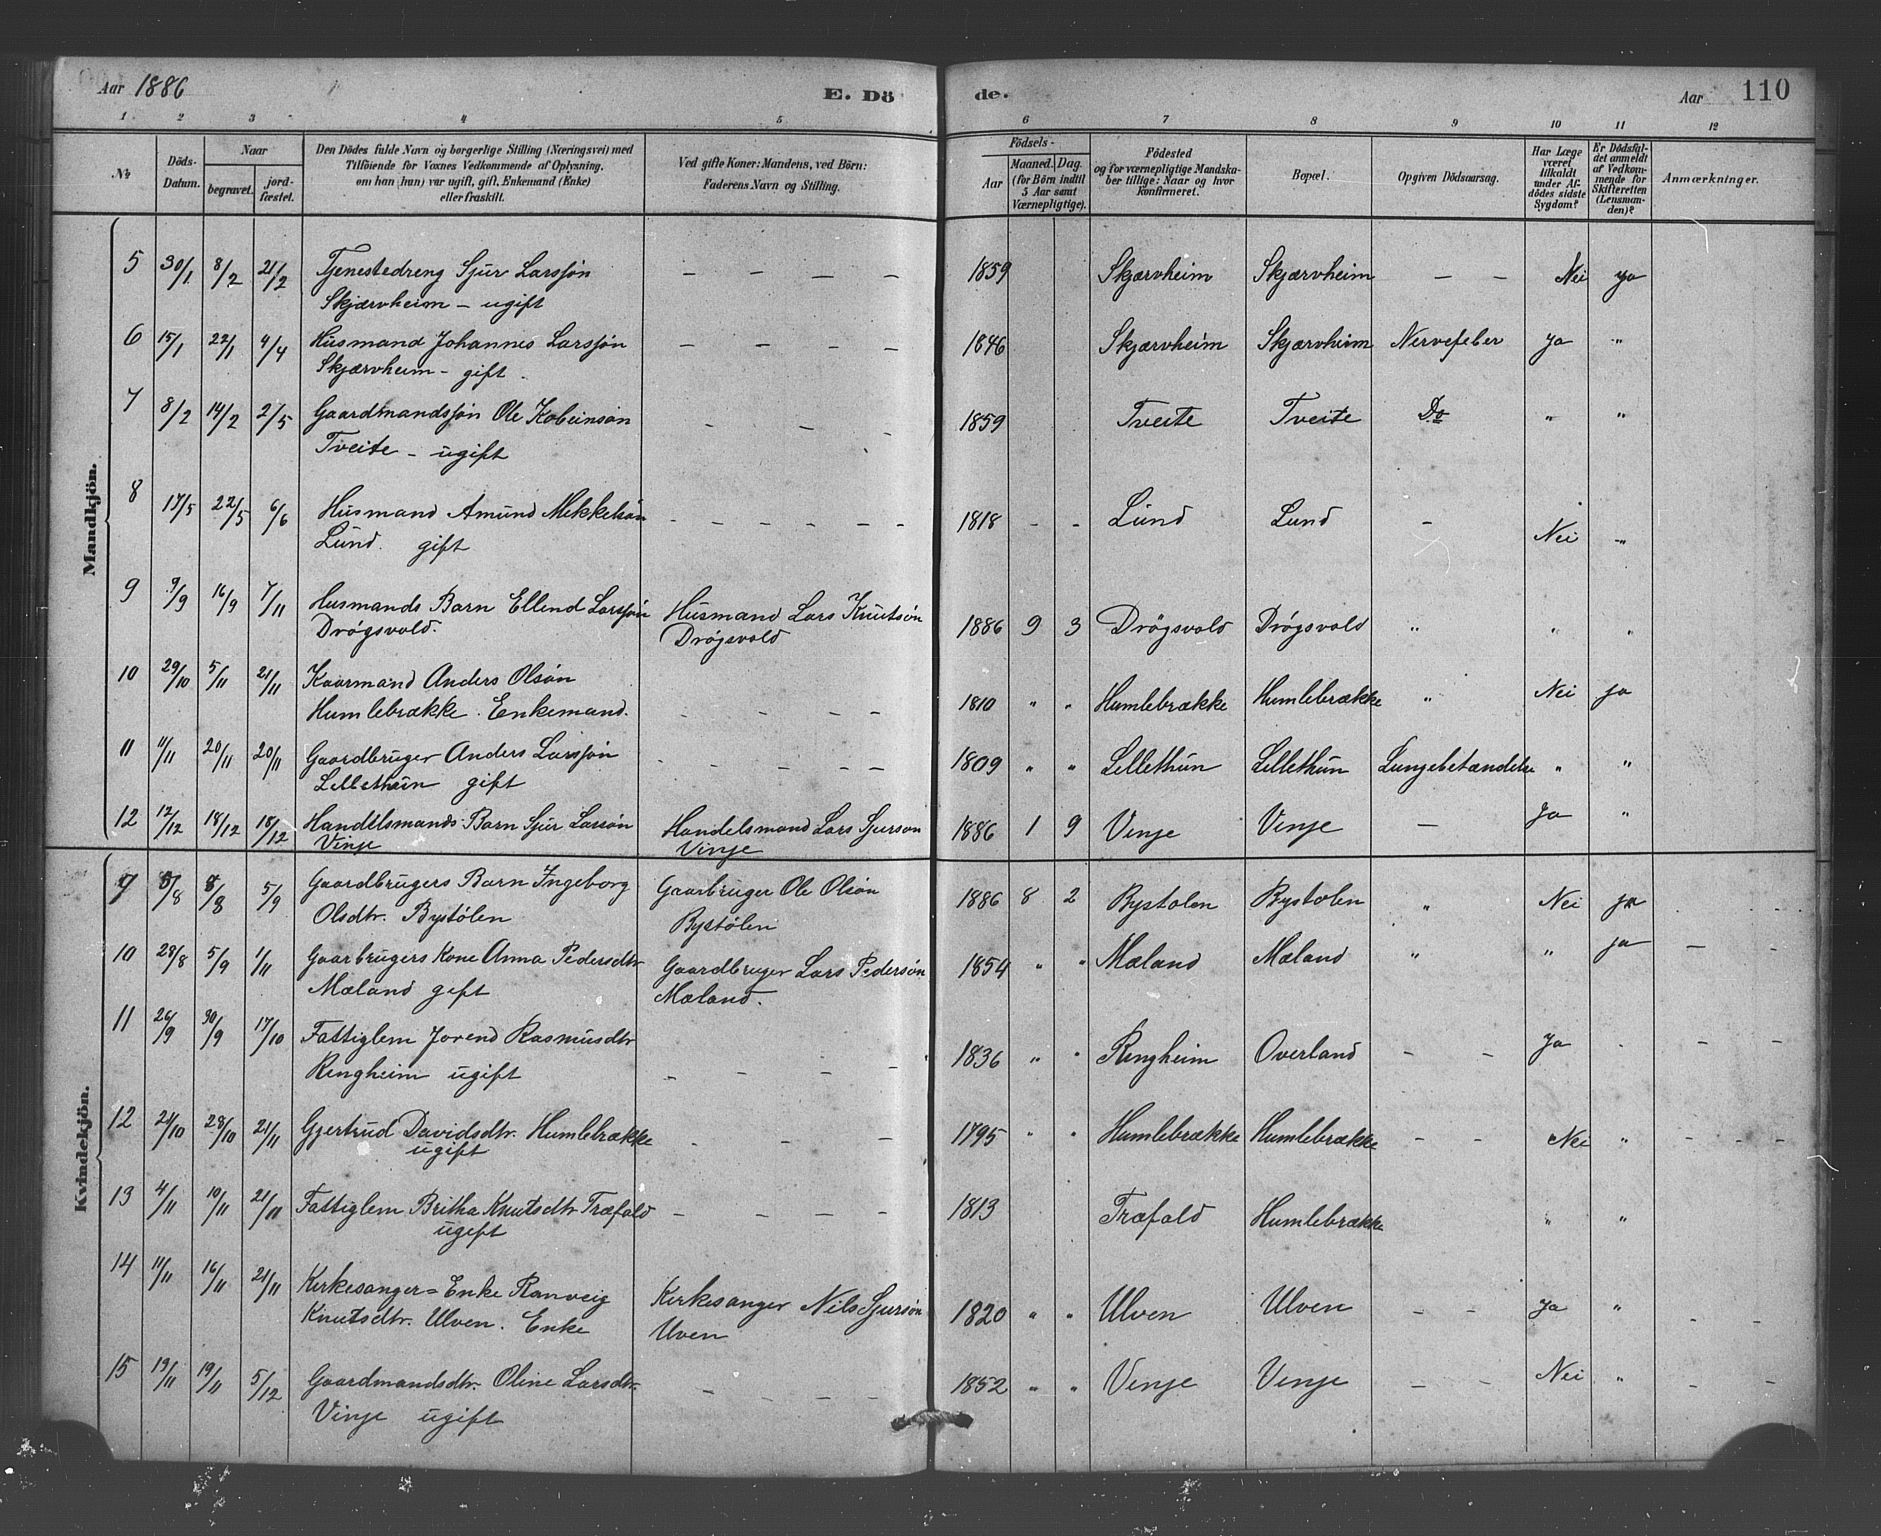 Aar 1886
E. Dö
de.
Aar
110
1 2 3 4 5 6 7 8 9 10 11 12
№
Döds-Datum.
Naar
begravet.
jord-fæstet.
Den Dödes fulde Navn og borgerlige Stilling (Næringsvei) med
Tilföiende for Voxnes Vedkommende af Oplysning.
om han (hun) var ugift, gift, Enkemand (Enke)
eller fraskilt.
Ved gifte Koner: Mandens, ved Börn:
Faderens Navn og Stilling.
Födsels-
Aar
Maaned. Dag.
(for Börn indtil
5 Aar samt
Værnepligtige).
Födested
og for værnepligtige Mandska-
ber tillige: Naar og hvor
konfirmeret.
Bopæl.
Opgiven Dödsaarsag.
Har Læge
været
tilkaldt
under Af-
dödes sidste
Sygdom?
Er Dödsfal-
det anmeldt
af Vedkom-
mende for
Skifteretten
(Lensman-
den)?
Anmærkninger.
Mandkjön.
5 30/1 8/2 21/2 Tjenestedreng Sjur Larssøn — — — — 1859 Skjærvheim Skjærvheim — — Nei ja
Skjærvheim — ugift
6 15/1 22/1 4/4 Husmand Johannes Larssøn — — — — 1846 Skjærvheim Skjærvheim Nervefeber ja "
Skjærvheim — gift
7 8/2 14/2 2/5 Gaardmandssøn Ole Kolbeinsøn — — — 1859 Tveite Tveite Do " "
Tveite — ugift
8 17/5 22/5 6/6 Husmand Amund Mikkelsøn — — — — — — 1818 — — Lund Lund — Nei "
Lund. gift
9 9/9 16/9 7/11 Husmands Barn Ellend Larssøn Husmand Lars Knutsøn 1886 9 3 Drøgsvold Drøgsvold " " "
Drøgsvold. Drøgsvold
10 29/10 5/11 21/11 Kaarmand Anders Olsøn
Humlebrække. Enkemand. — — — — 1810 " " Humlebrække Humlebrække " Nei ja
11 11/11 20/11 20/11 Gaardbruger Anders Larssøn — — — — — 1809 " " Lillethun Lillethun Lungebetændelse " "
Lillethun gift
12 12/12 18/12 18/12 Handelsmands Barn Sjur Larsøn Handelsmand Lars Sjurson 1886 1 9 Vinje Vinje — Ja "
Vinje Vinje
Kvindekjön.
8/8 5/9 Gaardbrugers Barn Ingeborg Gaarbruger Ole Olsøn 1886 8 2 Bystolen Bystolen " Nei ja
Olsdtr. Bystølen Bystølen
10 28/8 5/9 1/11 Gaarbrugers Kone Anna Pedersdtr Gaardbruger Lars Pedersøn 1854 " " Mæland Mæland " " ja —
Mæland gift Mæland.
11 26/9 30/9 17/10 Fattiglem Jorend Rasmusdtr 1836 " " Ringheim Overland — — Ja — —
Ringheim ugift — — — —
12 21/10 28/10 21/11 Gjertrud Davidsdtr. Humlebrække — — — 1795 " " Humlebrække Humlebrække — — Nei " — — —
ugift
13 4/11 10/11 21/11 Fattiglem Britha Knutsdtr Træfald — — — — 1813 Træfald Humlebrække " "
ugift
14 11/11 16/11 21/11 Kirkesanger = Enke Ranveig Kirkesanger Nils Sjursøn 1820 " " Ulven Ulven — — ja " — —
Knutsdtr. Ulven. Enke Uven
15 19/11 5/12 Gaardmandsdtr. Oline Larsdtr. — — — 1852 " " Vinje Vinje — — Nei " — —
Vinje ugift